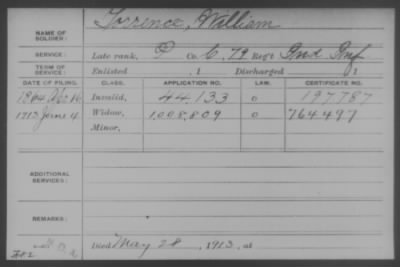 NAME OF SOLDIER: Torrence, William
SERVICE: Late rank, P Co. C, 79 Reg't Ind Inf
TERM OF SERVICE: Enlisted , 1 Discharged , 1
DATE OF FILING. CLASS. APPLICATION NO. LAW. CERTIFICATE NO.
1864 Invalid, 44,133 0 197,787
1913 June 4 Widow, 1,008,809 0 764497
Minor,
ADDITIONAL SERVICES:
REMARKS:
Died May 28, 1913, at